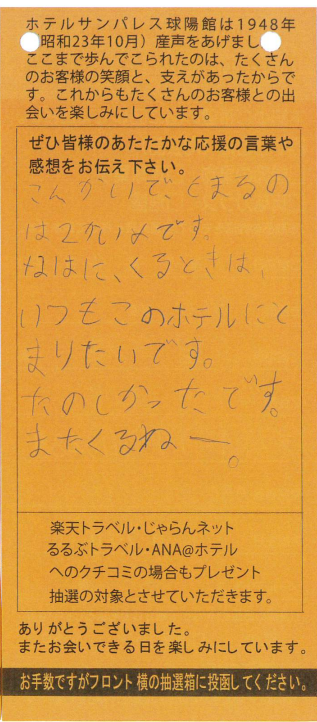 ホテルサンパレス球陽館は1948年
昭和23年10月）産声をあげまし
ここまで歩んでこられたのは、たくさん
のお客様の笑顔と、支えがあったからで
す。これからもたくさんのお客様との出
会いを楽しみにしています。
ぜひ皆様のあたたかな応援の言葉や
感想をお伝え下さい。
こんかいで、とまるの
は2かいメです。
なはに、くるときは、
いつもこのホテルにと
まりたいです。
たのしかったです。
またくるねー。
楽天トラベル・じゃらんネット
るるぶトラベル・ANA@ホテル
へのクチコミの場合もプレゼント
抽選の対象とさせていただきます。
ありがとうございました。
またお会いできる日を楽しみにしています。
お手数ですがフロント横の抽選箱に投函してください。